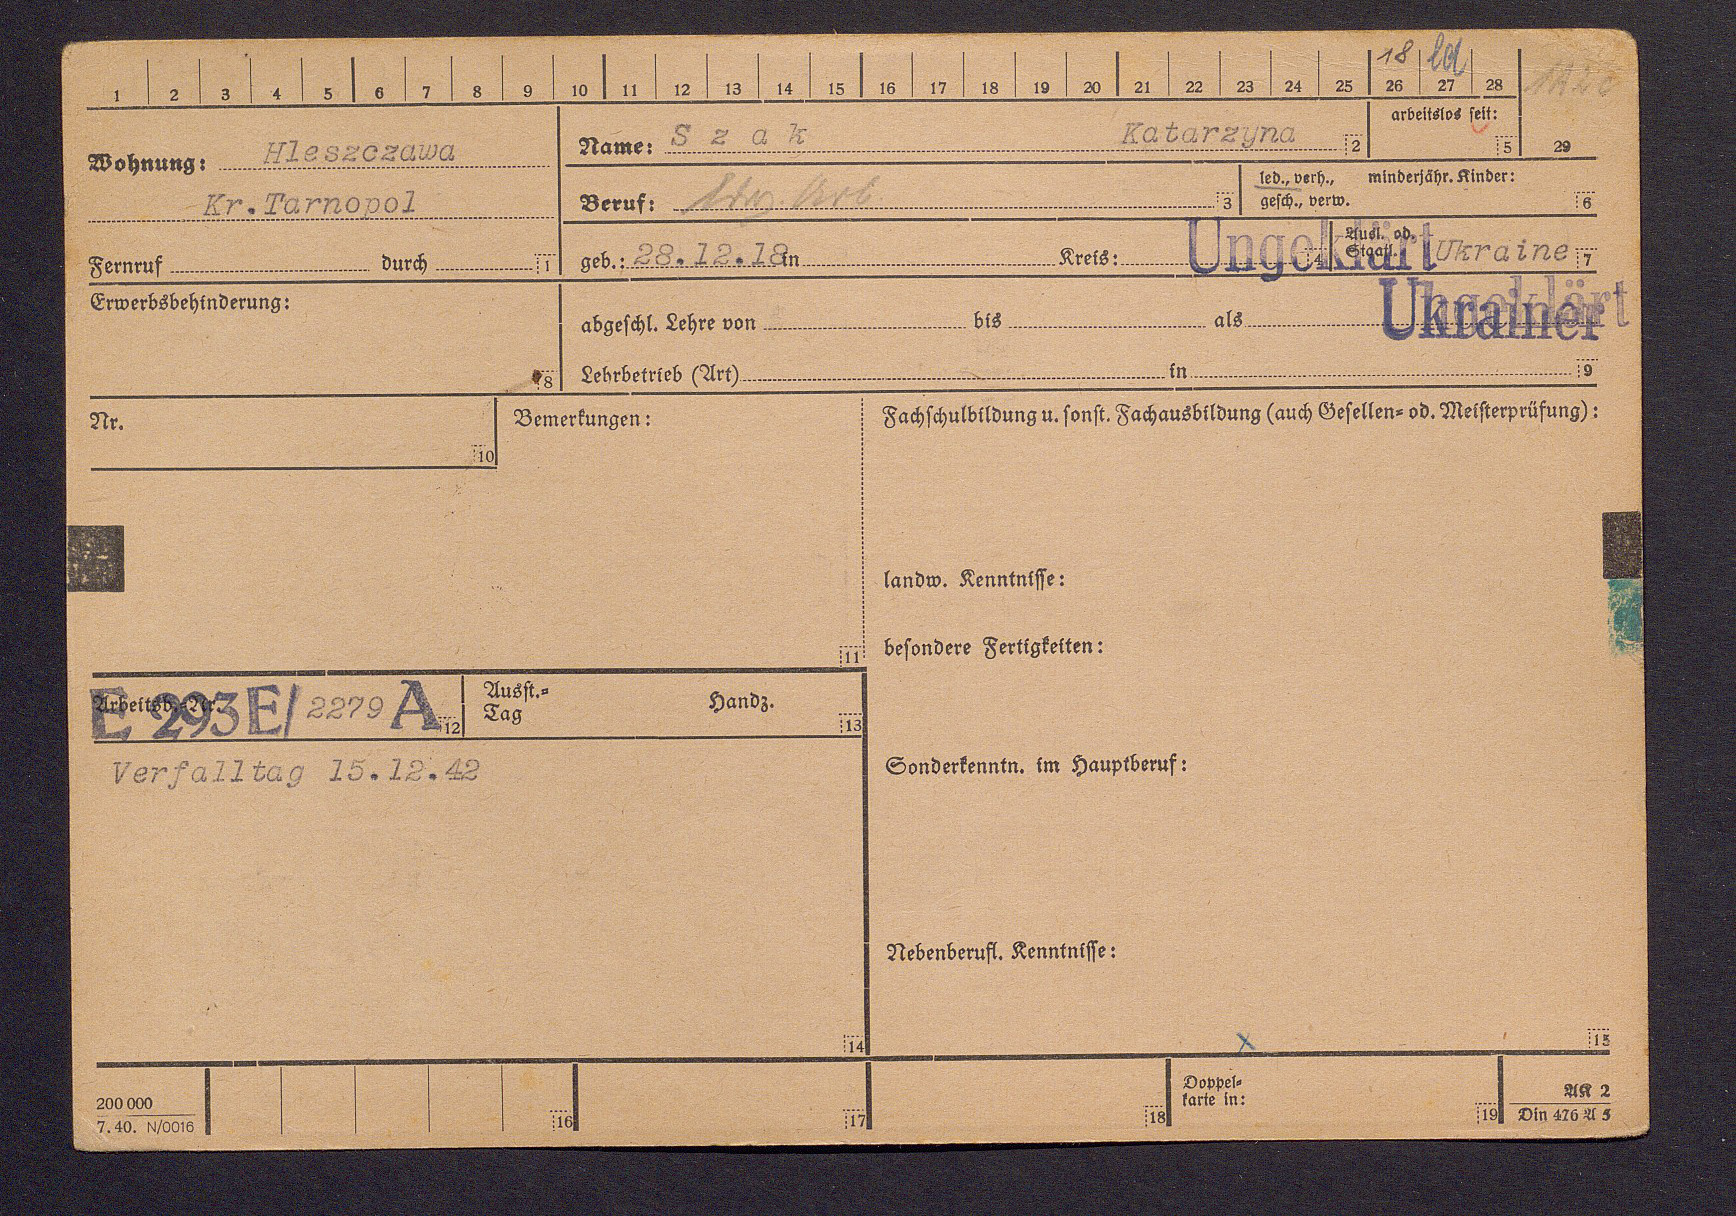 1 2 3 4 5 6 7 8 9 10 11 12 13 14 15 16 17 18 19 20 21 22 23 24 25 26 27 28
18
Wohnung: Hleszczawa
Kr.Tarnopol
Fernruf durch 1
Name: S z a k Katarzyna 2
arbeitslos seit: 5
29
Beruf: 3
led., verh., minderjähr. Kinder:
gesch., verw. 6
geb.: 28.12.18 in Kreis: 4
Ungeklärt
Ausl. od.
Staatl. Ukraine 7
Erwerbsbehinderung:
8
abgeschl. Lehre von bis als
Ungeklärt
Ukrainer
Lehrbetrieb (Art) in 9
Nr.
10
Bemerkungen:
11
Fachschulbildung u. sonst. Fachausbildung (auch Gesellen= od. Meisterprüfung):
landw. Kenntnisse:
besondere Fertigkeiten:
Arbeitsb.-Nr.
E 293 E/ 2279 A 12
Ausst.=
Tag Handz. 13
Verfalltag 15.12.42
14
Sonderkenntn. im Hauptberuf:
Nebenberufl. Kenntnisse:
x
15
200 000
7. 40. N/0016
16
17
18
Doppel=
karte in: 19
AK 2
Din 476 A 5